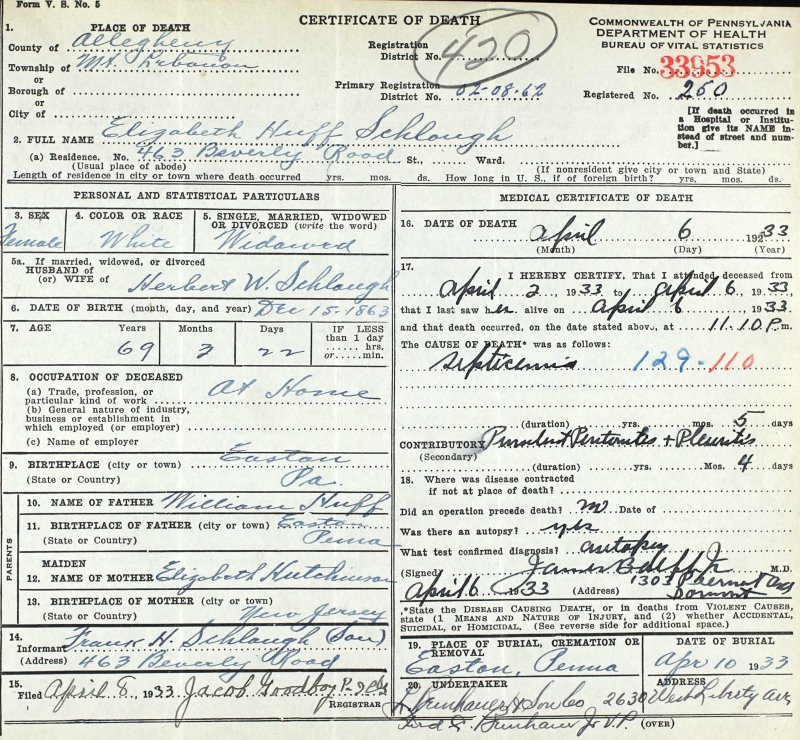 Form V. S. No. 5
CERTIFICATE OF DEATH
COMMONWEALTH OF PENNSYLVANIA
DEPARTMENT OF HEALTH
BUREAU OF VITAL STATISTICS
1. PLACE OF DEATH
County of Allegheny
Township of Mt. Lebanon
or
Borough of
or
City of
Registration District No. 420
Primary Registration District No. 02-08-62
File No. 33953
Registered No. 250
[If death occurred in a Hospital or Institution give its NAME instead of street and number.]
2. FULL NAME Elizabeth Huff Schlough
(a) Residence. No. 463 Beverly Road St., Ward.
(Usual place of abode) (If nonresident give city or town and State)
Length of residence in city or town where death occurred yrs. mos. ds. How long in U. S., if of foreign birth? yrs. mos. ds.
PERSONAL AND STATISTICAL PARTICULARS
3. SEX
Female
4. COLOR OR RACE
White
5. SINGLE, MARRIED, WIDOWED OR DIVORCED (write the word)
Widowed
5a. If married, widowed, or divorced
HUSBAND of
(or) WIFE of Herbert W. Schlough
6. DATE OF BIRTH (month, day, and year) Dec 15-1863
7. AGE Years Months Days IF LESS than 1 day
hrs.
or min.
69 3 22
8. OCCUPATION OF DECEASED
(a) Trade, profession, or particular kind of work At Home
(b) General nature of industry, business or establishment in which employed (or employer)
(c) Name of employer
9. BIRTHPLACE (city or town) Easton
(State or Country) Pa.
PARENTS
10. NAME OF FATHER William Huff
11. BIRTHPLACE OF FATHER (city or town) Easton
(State or Country) Penna
12. MAIDEN NAME OF MOTHER Elizabeth Hutchinson
13. BIRTHPLACE OF MOTHER (city or town)
(State or Country) New Jersey
14. Informant Frank H. Schlough (Son)
(Address) 463 Beverly Road
15. Filed April 8, 1933 Jacob Goodboy
REGISTRAR
MEDICAL CERTIFICATE OF DEATH
16. DATE OF DEATH April 6 1933
(Month) (Day) (Year)
17. I HEREBY CERTIFY, That I attended deceased from
April 2, 1933 to April 6, 1933
that I last saw her alive on April 6 1933
and that death occurred, on the date stated above, at 11.10 P.m.
The CAUSE OF DEATH* was as follows:
Septicemia 129-110
(duration) yrs. mos. 5 days
CONTRIBUTORY Purulent Peritonitis + Pleuritis
(Secondary)
(duration) yrs. Mos. 4 days
18. Where was disease contracted
if not at place of death?
Did an operation precede death? no Date of
Was there an autopsy? yes
What test confirmed diagnosis? autopsy
(Signed) James M.D.
April 6 1933 (Address) 1303 Dormont
*State the DISEASE CAUSING DEATH, or in deaths from VIOLENT CAUSES, state (1 MEANS AND NATURE OF INJURY, and (2) whether ACCIDENTAL, SUICIDAL, or HOMICIDAL. (See reverse side for additional space.)
19. PLACE OF BURIAL, CREMATION OR REMOVAL
Easton, Penna
DATE OF BURIAL
Apr 10 1933
20. UNDERTAKER
ADDRESS
Beinhauer & Son Co 2630 West Liberty Ave
Beinhauer Jr V.P. (OVER)